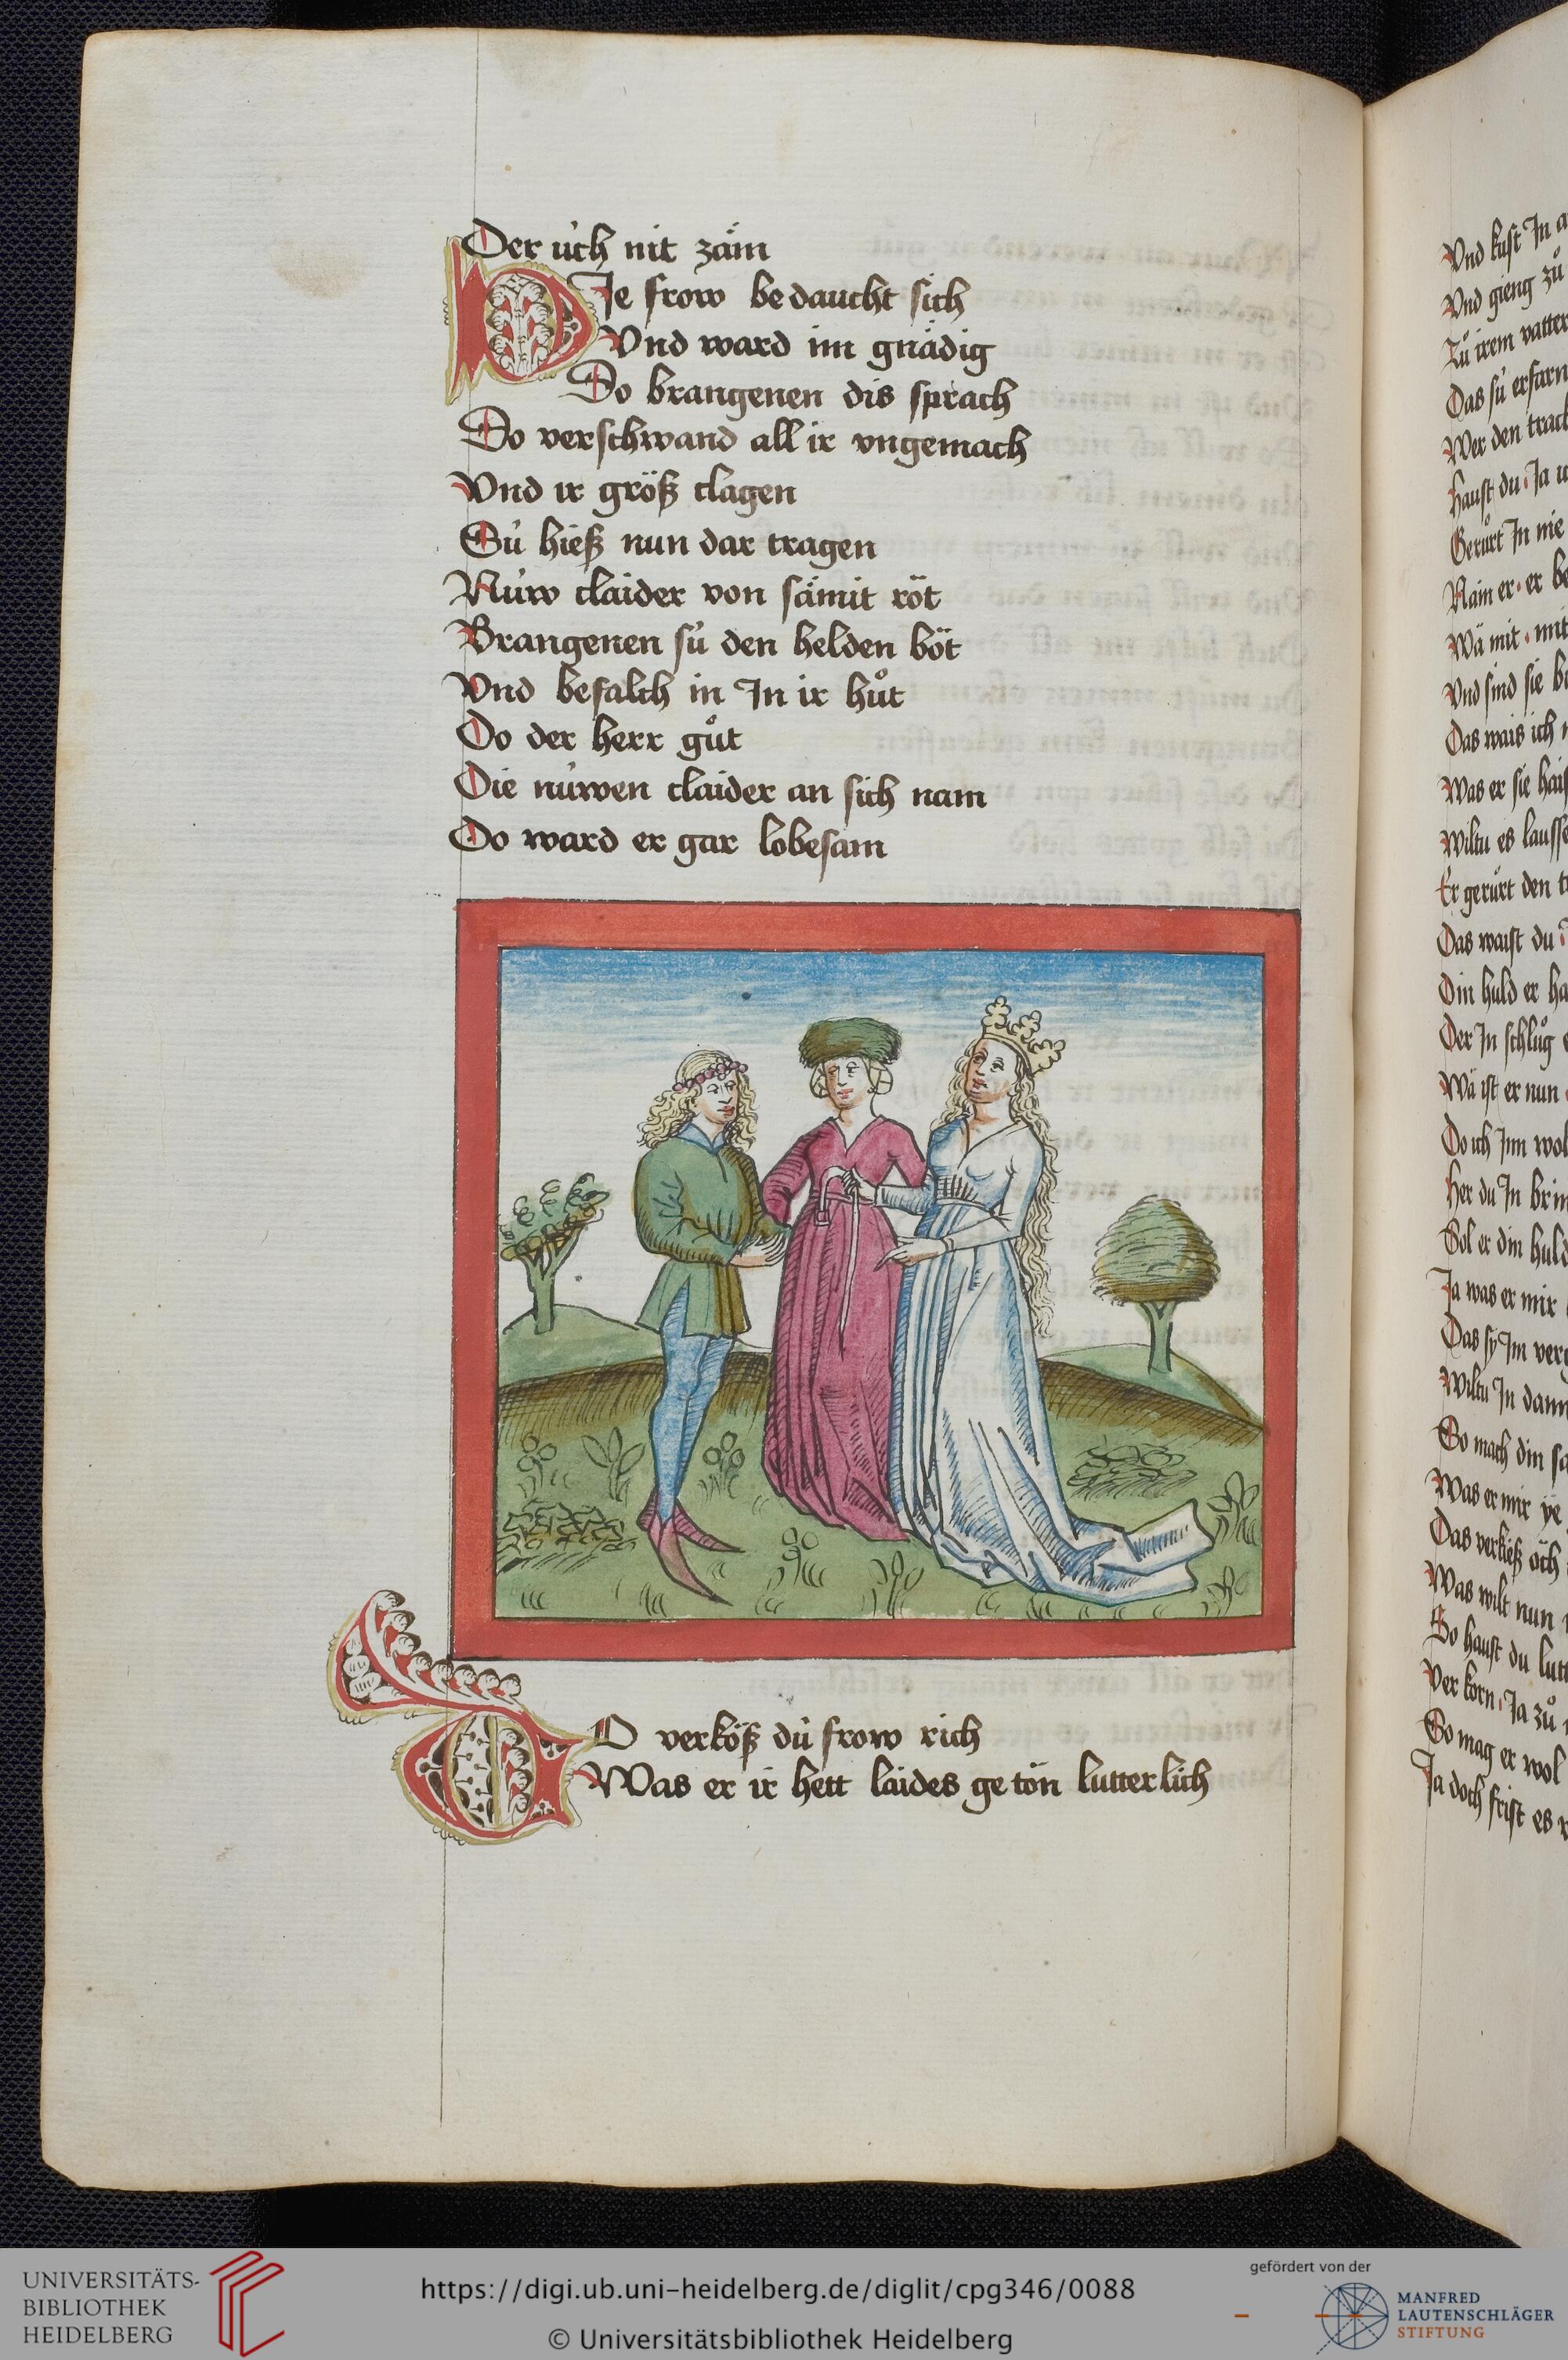 Der úch nit zäm
DJe frow bedaucht sich
Vnd ward im gnädig
Do brangenen dis sprach
Do verschwand all ir vngemach
Vnd ir größ clagen
Sú hieß nun dar tragen
Núw claider von sämit röt
Brangenen sú den helden böt
Vnd befalch in Jn ir hůt
Do der herr gůt
Die núwen claider an sich nam
Do ward er gar lobesam
DO verköß dú frow rich
Was er ir hett laides getön lutterlich
Vnd kust Jn
Vnd gieng zů
Zů irem vatter
Das sú erfarn
Wer den
Haust du Ja
Gerürt Jn nie
Nain er er
Wä mit mit
Vnd sind sie
Das wais ich
Was er sie
Wiltu es
Er gerürt den
Das waist du
Din huld er
Der Jn schlůg
Wä ist er nun
Do ich Jnn
Her du Jn
Sol er din
Ja was er mir
Das sy Jm
Wiltu Jn
So mach din
Was er mir ye
Das verkieß öch
Was wilt nun
So haust du
Ver korn Ja zů
So mag er wol
Ja doch frist es
UNIVERSITÄTS-
BIBLIOTHEK
HEIDELBERG
https://digi.ub.uni-heidelberg.de/diglit/cpg346/0088
© Universitätsbibliothek Heidelberg
gefördert von der
MANFRED
LAUTENSCHLÄGER
STIFTUNG